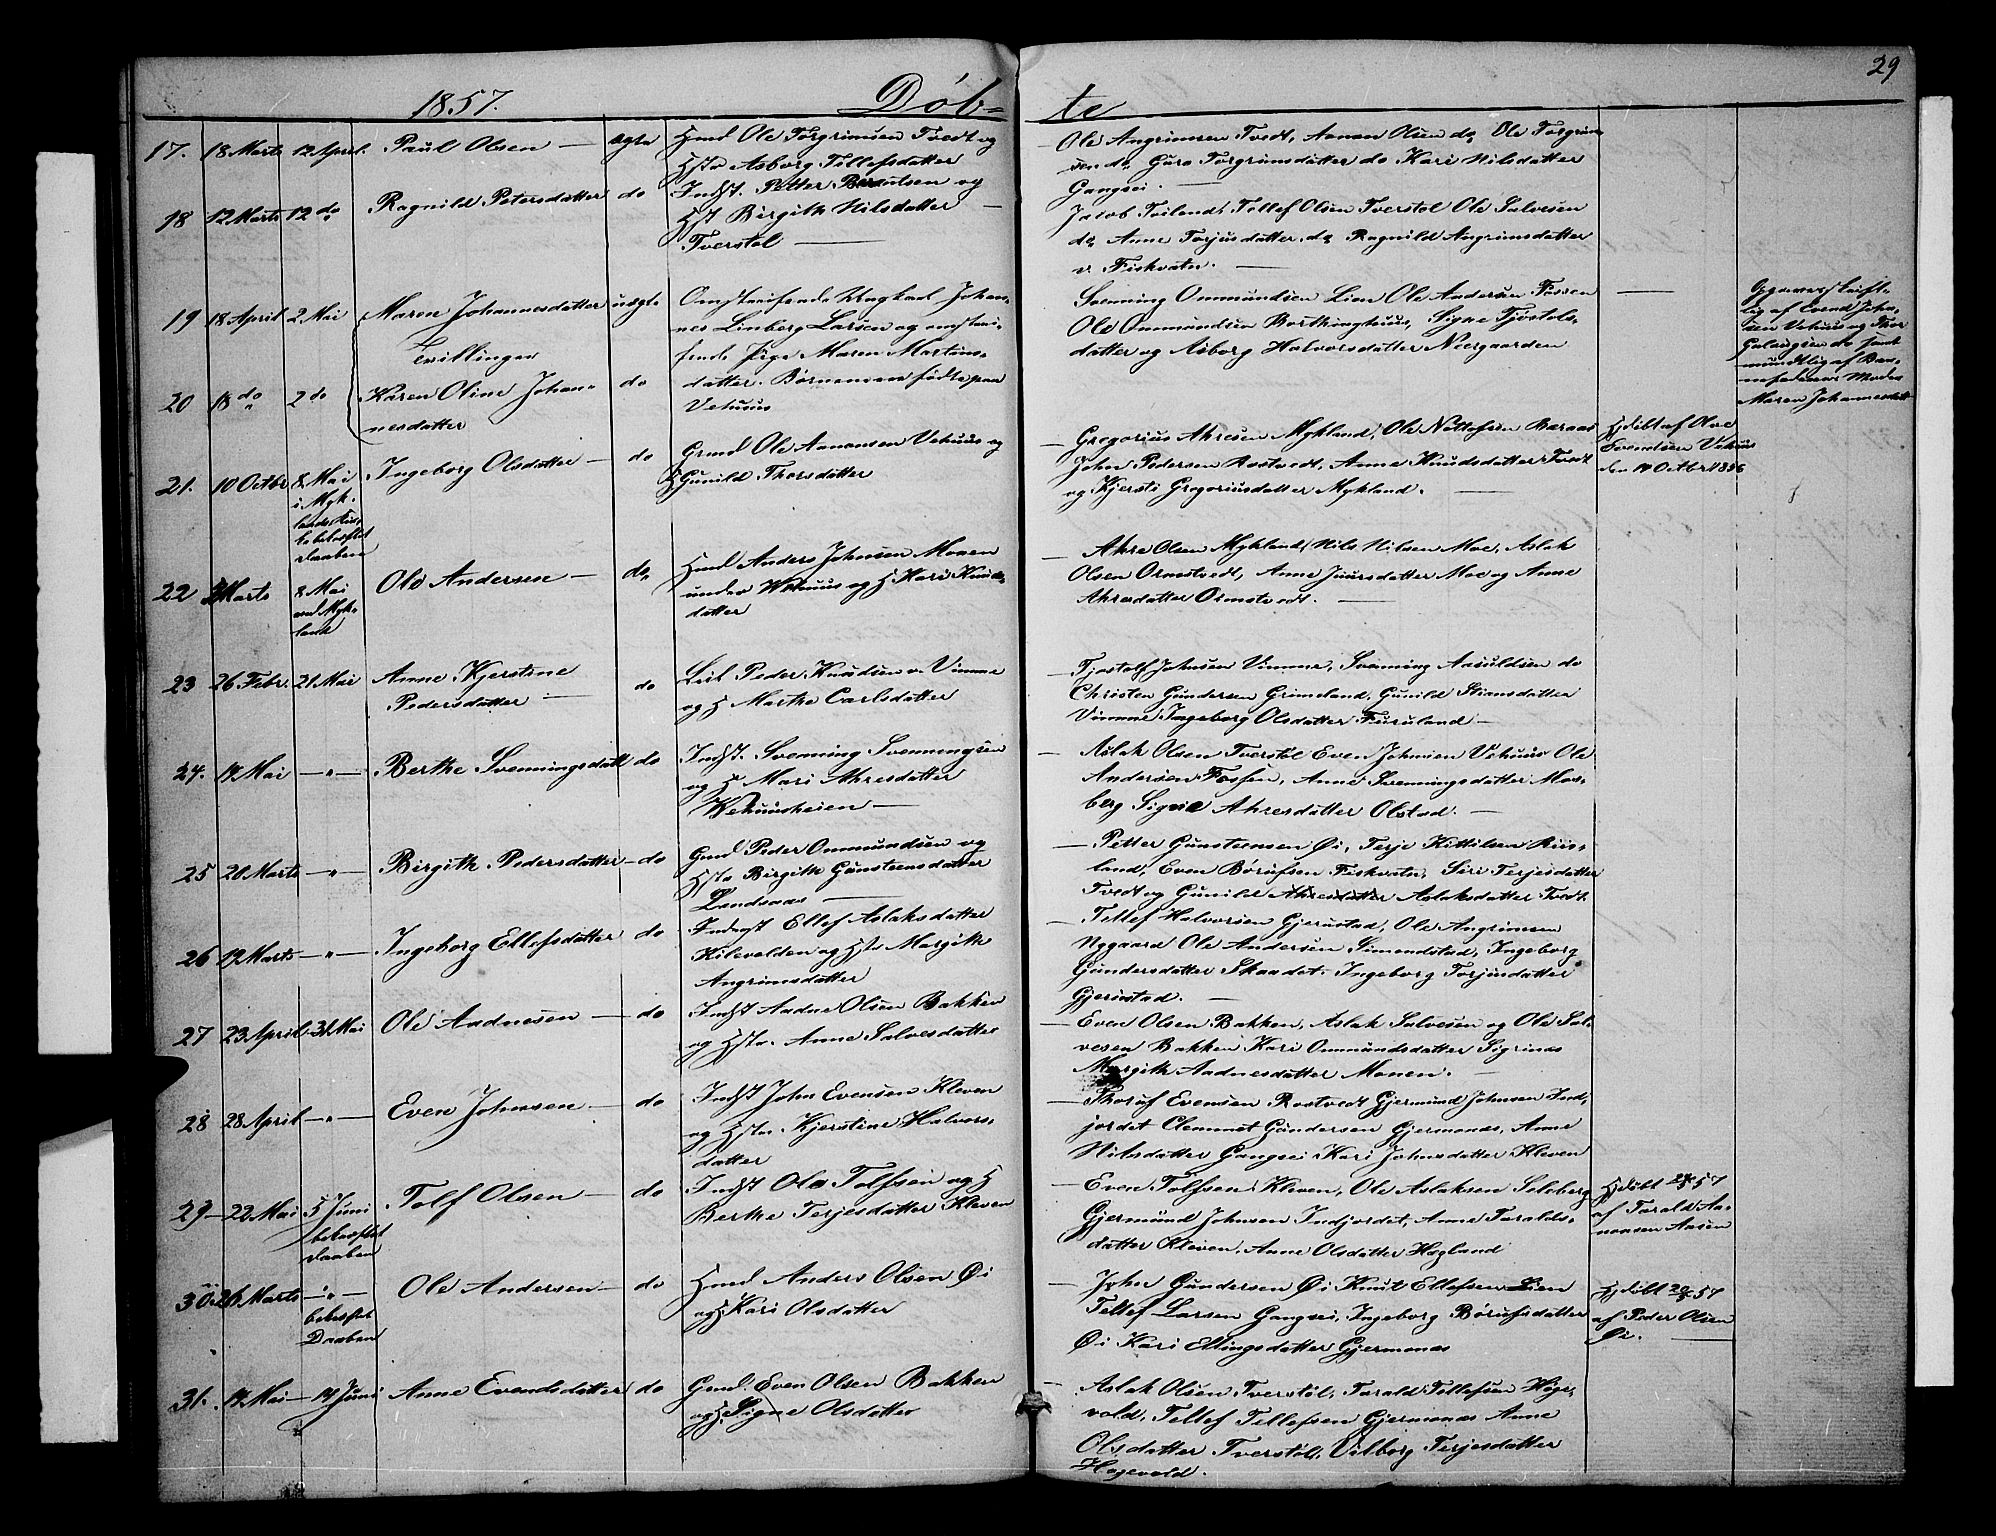 29
1857. Döb= te
17. 18 Marts 12 April. Paul Olsen — ægte
Gmd Ole Torgrimsen Tvedt og
Hstr Asborg Tellefsdatter
Ole Angrimsen Tvedt, Aanon Olsen do Ole Torgrim
sen do, Guro Torgrimsdatter do Kari Nilsdatter
Gangsei. —
18 12 Marts 12 do Ragnild Petersdatter do
Indst. Petter Berntsen og
Hst Birgith Nilsdatter —
Tverstøl —
Jacob Tveiland, Tellef Olsen Tverstøl Ole Salvesen
do, Anne Torjusdatter do Ragnild Angrimsdatter
v. Fiskvatn. —
19 18 April 2 Mai Maren Johannesdatter uægte
Tvillinger
Omstreifende Ungkarl Johan-
nes Linberg Larsen og omstrei-
fende Pige Maren Martins-
datter. Børnene ere fødte paa
Vehuus
Svenning Ommundsen Lien Ole Andersen Fossen —
Ole Ommundsen Borthinghuus, Signe Tjostols-
datter og Asborg Halvorsdatter Neergaarden
af Evend John-
sen Vehuus og Thor
do samt
mundtlig af Bar-
nefaderens Moder
Maren Johannesdatt
20 18 do 2 do Karen Oline Johan-
nesdatter do
21. 10 Octbr 8 Mai
i Myk-
lands Kir-
ke bekræftet
Daaben
Ingeborg Olsdatter — do
Gmd Ole Aanonsen Vehuus og
H Gunild Thorsdatter
— Gregorius Akresen Mykland, Ole Nottofsen Baraas
John Pedersen Rostvedt, Anne Knudsdatter Tvedt
og Kjersti Gregoriusdatter Mykland. —
Hjdöbt af Olve
Evendsen Vehuus
den 14 Octbr 1856
22 Marts 8 Mai
ved Myk-
land
Ole Andersen — do
Hmd Anders Johnsen Monen
under Wehuus og H Kari Knuds-
datter
— Akre Olsen Mykland, Nils Nilsen Moe, Aslak
Olsen Ormstvedt, Anne Juursdatter Moe og Anne
Akresdatter Ormstvedt. —
23 26 Febr. 21 Mai Anne Kjerstine
Pedersdatter — do
Leil Peder Knudsen v. Vimme
og H Marthe Carlsdatter
— Tjostolf Johnsen Vimme, Svenning Aasuldsen do
Christen Gundersen Grimeland, Gunild Stiansdatter
Vimme Ingeborg Olsdatter Fururland —
24. 17 Mai —"— Berthe Svenningsdatt do
Indst. Svenning Svenningsen
og H Mari Akresdatter
Wehuusheien —
— Aslak Olsen Tverstøl Even Johnsen Vehuus Ole
Andersen Fossen, Anne Svenningsdatter Mos-
berg Signe Akresdatter Olstad. —
25 20 Marts —"— Birgith Pedersdatter — do
Gmd Peder Ommundsen og
Hstr Birgith Gunsteensdatter
Landsaas —
— Petter Gunsteensen Øi, Terje Kittilsen Riis-
land, Even Börufsen Fiskvatn, Siri Terjesdatter
Tvedt og Gunild Akresdatter Aslaksdatter Tvedt.
26 19 Marts —"— Ingeborg Ellefsdatter do
Indrst Ellef Aslaksdatter
Kilevolden og Hstr Margith
Angrimsdatter
— Tellef Halvorsen Gjerustad, Ole Angrimsen
Nygaard Ole Andersen Simondstad, Ingeborg
Gundersdatter Skaadet, Ingeborg Torjusdatter
Gjerustad. —
27 23 April 31 Mai Ole Aadnesen — do
Indst Aadne Olsen Bakken
og Hstr. Anne Salvesdatter
— Even Olsen Bakken, Aslak Salvesen og Ole Sal-
vesen Bakken Kari Ommundsdatter Sigrinæs
Margith Aadnesdatter Monen. —
28 28 April —"— Even Johnsen — do
Indst John Evensen Kleven
og Hstr. Kjerstine Halvors-
datter
— Thoruf Evensen Rostvedt Gjermund Johnsen Ind-
jordet Clemmet Gundersen Gjermones, Anne
Nilsdatter Gangsei Kari Johnsdatter Kleven
29 — 22 Mai 5 Juni
bekræftet
Daaben
Tolf Olsen — do
Indst Ole Tolfsen og H
Berthe Terjesdatter Kleven
— Even Tolfsen Kleven, Ole Aslaksen Seleberg
Gjermund Johnsen Indjordet, Anne Taralds-
datter Kleven, Anne Olsdatter Hægland
Hjdöbt 24/5 57
af Tarald Aa-
nonsen Aasen
30 26 Marts —"—
bekræftet
Daaben
Ole Andersen — do
Hmd Anders Olsen Øi
og H Kari Olsdatter
— John Gundersen Øi Knut Ellefsen Lien
Tellef Larsen Gangsei, Ingeborg Börufsdatter
Øi Kari Ellingsdatter Gjermones
Hjdöbt 57
af Peder Olsen
Øi. —
31. 17 Mai — 14 Juni Anne Evendsdatter do
Gmd. Even Olsen Bakken
og H. Signe Olsdatter
— Aslak Olsen Tverstøl, Tarald Tellefsen Høge-
vold, Tellef Tellefsen Gjermones Anne
Olsdatter Tverstøl, Vilborg Terjesdatter
Høgevold.